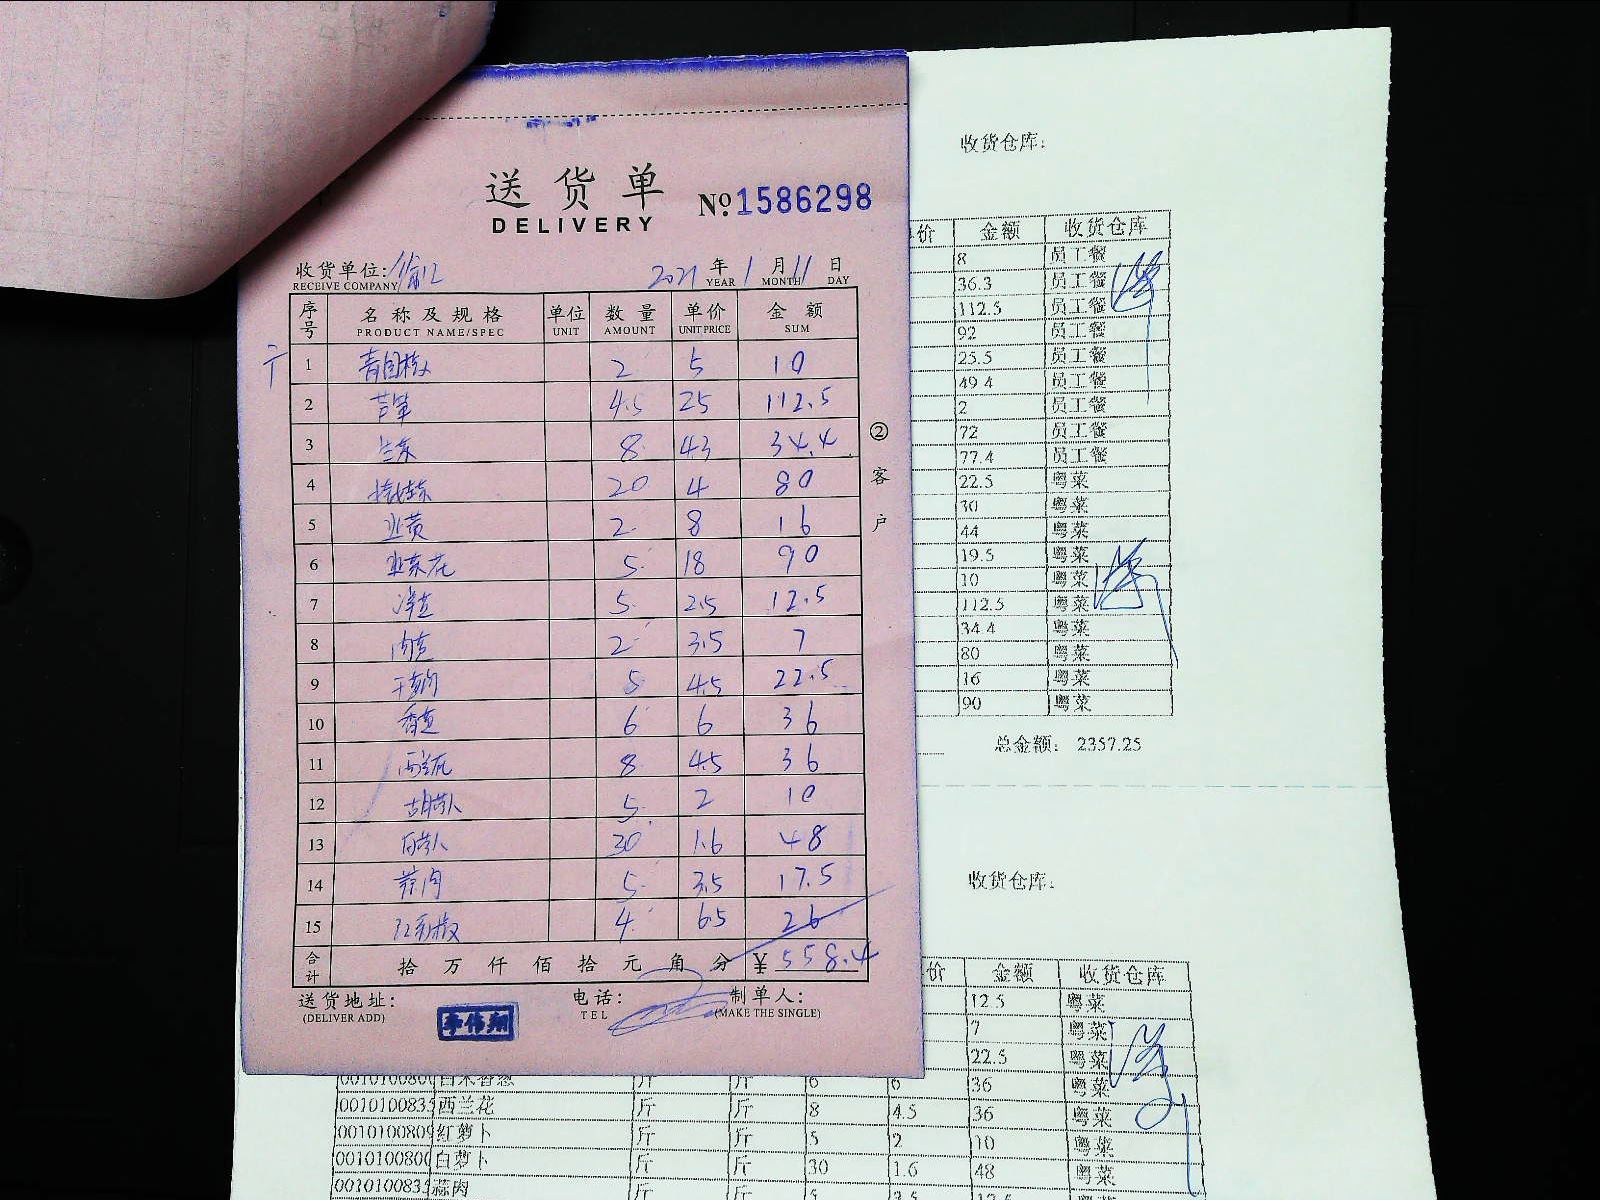 送货单
DELIVERY
№ 1586298
收货单位:
RECEIVE COMPANY
2021 年 1 月 11 日
YEAR MONTH DAY
序号 名称及规格 单位 数量 单价 金额
PRODUCT NAME/SPEC UNIT AMOUNT UNIT PRICE SUM
1 青圆椒 2 5 10
2 芦笋 4.5 25 112.5
3 8 43 34.4
4 20 4 80
5 韭黄 2 8 16
6 韭菜花 5 18 90
7 5 2.5 12.5
8 2 3.5 7
9 5 4.5 22.5
10 6 6 36
11 西兰花 8 4.5 36
12 5 2 10
13 30 1.6 48
14 蒜肉 5 3.5 17.5
15 4 6.5 26
合计 拾 万 仟 佰 拾 元 角 分 ¥ 558.4
送货地址: 电话: 制单人:
(DELIVER ADD) TEL (MAKE THE SINGLE)
李伟翔
②客户
收货仓库:
价 金额 收货仓库
8 员工餐
36.3 员工餐
112.5 员工餐
92 员工餐
25.5 员工餐
49.4 员工餐
2 员工餐
72 员工餐
77.4 员工餐
22.5 粤菜
30 粤菜
44 粤菜
19.5 粤菜
10 粤菜
112.5 粤菜
34.4 粤菜
80 粤菜
16 粤菜
90 粤菜
总金额: 2357.25
收货仓库:
价 金额 收货仓库
12.5 粤菜
7 粤菜
22.5 粤菜
斤 斤 6 6 36 粤菜
001010083 西兰花 斤 斤 8 4.5 36 粤菜
001010080 红萝卜 斤 斤 5 2 10 粤菜
001010080 白萝卜 斤 斤 30 1.6 48 粤菜
001010083 蒜肉 斤 斤 5 3.5 17.5 粤菜